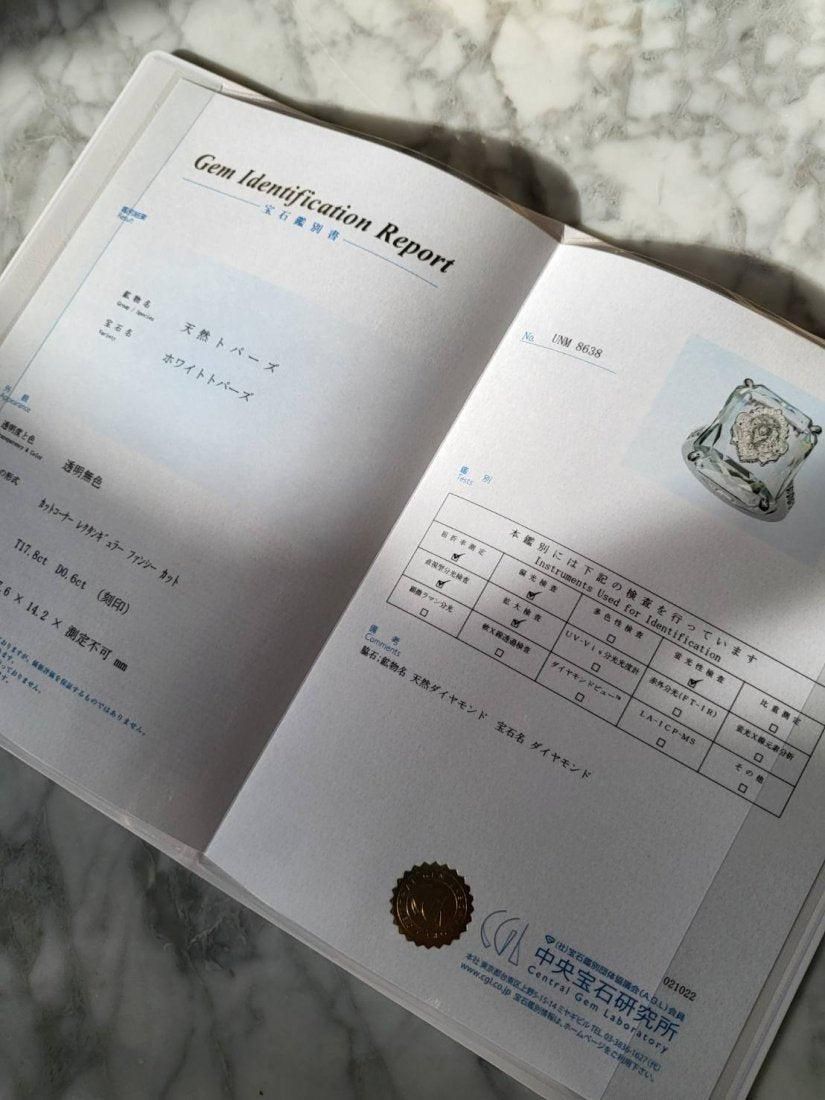 Gem Identification Report
宝石鑑別書
鑑別結果
Result
鉱物名
Group / Species
天然トパーズ
宝石名
Variety
ホワイトトパーズ
外観
Appearance
透明度と色
Transparency & Color
透明無色
の形式
カットコーナー レクタンギュラー ファンシー カット
T17.8ct D0.6ct (刻印)
.6 × 14.2 × 測定不可 mm
No. UNM 8638
鑑別
Tests
本鑑別には下記の検査を行っています
Instruments Used for Identification
屈折率測定 偏光検査 多色性検査 蛍光性検査 比重測定
直視型分光検査 拡大検査 UV-Vis分光光度計 赤外分光(FT-IR) 蛍光X線元素分析
顕微ラマン分光 軟X線透過検査 ダイヤモンドビュー™ LA-ICP-MS その他
備考
Comments
脇石:鉱物名 天然ダイヤモンド 宝石名 ダイヤモンド
(社)宝石鑑別団体協議会(A.G.L)会員
CGL 中央宝石研究所
Central Gem Laboratory
本社 東京都台東区上野5-15-14 ミヤギビル TEL 03-3836-1627(代)
www.cgl.co.jp 宝石鑑別情報は、ホームページをご利用下さい。
021022